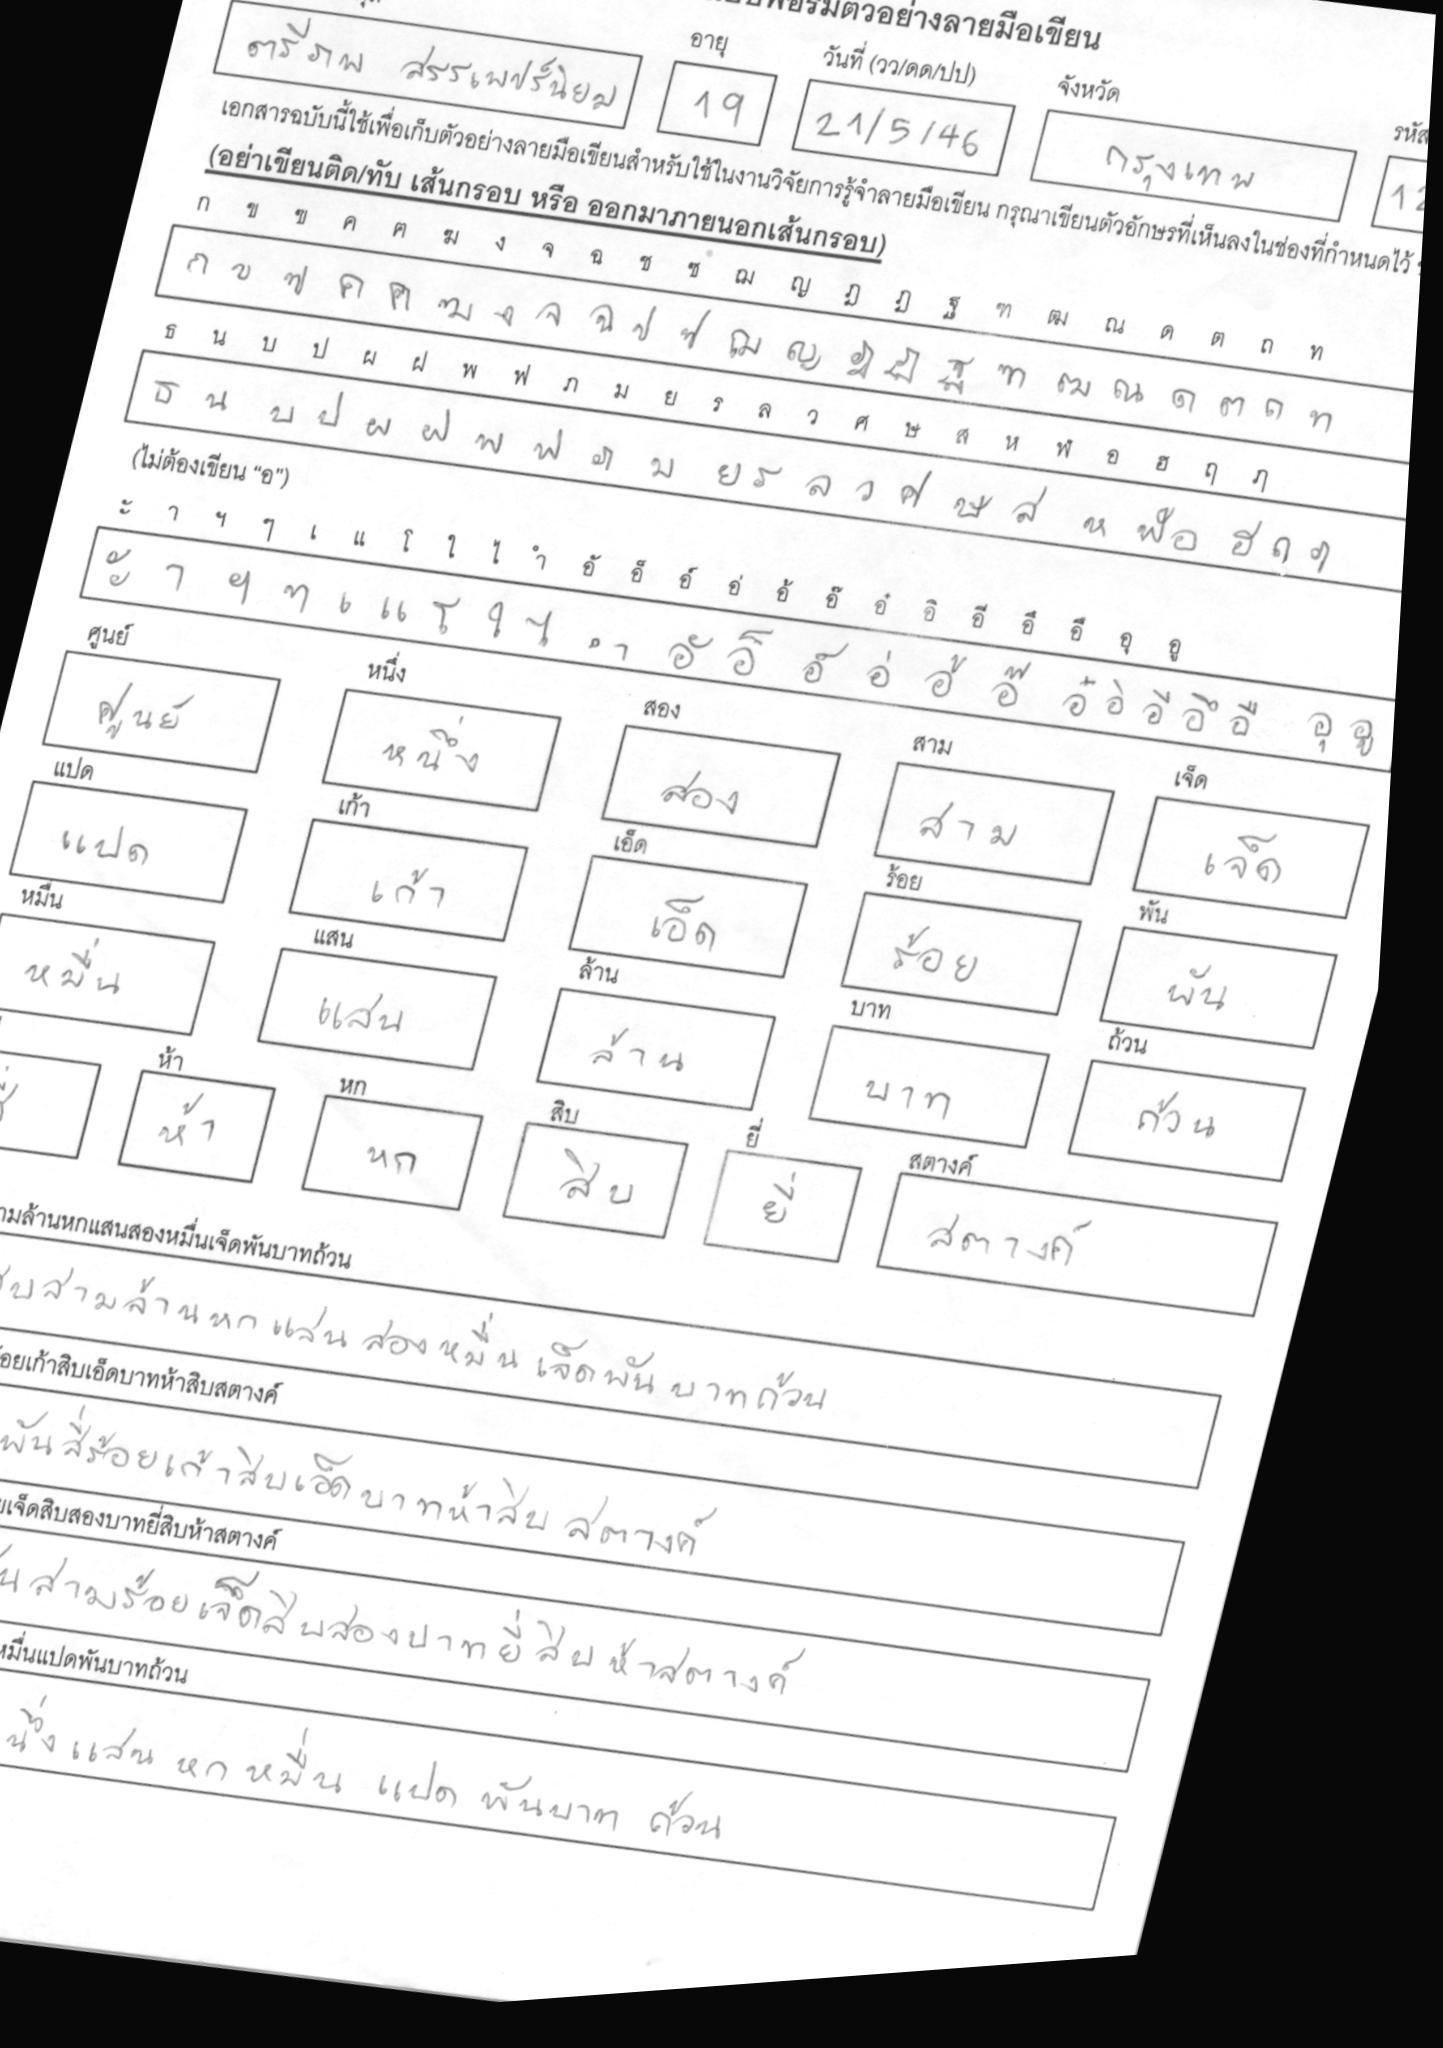 ตัวอย่างลายมือเขียน
อายุ วันที่ (วว/ดด/ปป) จังหวัด
ตรีภพ สรรเพชร์นิยม 19 21/5/46 กรุงเทพ
เอกสารฉบับนี้ใช้เพื่อเก็บตัวอย่างลายมือเขียนสำหรับใช้ในงานวิจัยการรู้จำลายมือเขียน กรุณาเขียนตัวอักษรที่เห็นลงในช่องที่กำหนดไว้
(อย่าเขียนติด/ทับ เส้นกรอบ หรือ ออกมาภายนอกเส้นกรอบ)
ก ข ฃ ค ฅ ฆ ง จ ฉ ช ซ ฌ ญ ฎ ฏ ฐ ฑ ฒ ณ ด ต ถ ท
ก ข ฃ ค ฅ ฆ ง จ ฉ ช ซ ฌ ญ ฎ ฏ ฐ ฑ ฒ ณ ด ต ถ ท
ธ น บ ป ผ ฝ พ ฟ ภ ม ย ร ล ว ศ ษ ส ห ฬ อ ฮ ฤ ฦ
ธ น บ ป ผ ฝ พ ฟ ภ ม ย ร ล ว ศ ษ ส ห ฬ อ ฮ ฤ ฦ
(ไม่ต้องเขียน “อ”)
ะ ั า ฯ ๆ เ แ โ ใ ไ ำ อั อ็ อ์ อ่ อ้ อ๊ อ๋ อิ อี อึ อื อุ อู
ะ ั า ฯ ๆ เ แ โ ใ ไ ำ อั อ็ อ์ อ่ อ้ อ๊ อ๋ อิ อี อึ อื อุ อู
ศูนย์ หนึ่ง สอง สาม เจ็ด
ศูนย์ หนึ่ง สอง สาม เจ็ด
แปด เก้า เอ็ด ร้อย พัน
แปด เก้า เอ็ด ร้อย พัน
หมื่น แสน ล้าน บาท ถ้วน
หมื่น แสน ล้าน บาท ถ้วน
ห้า หก สิบ ยี่ สตางค์
ห้า หก สิบ ยี่ สตางค์
ามล้านหกแสนสองหมื่นเจ็ดพันบาทถ้วน
บสามล้านหกแสนสองหมื่นเจ็ดพันบาทถ้วน
้อยเก้าสิบเอ็ดบาทห้าสิบสตางค์
พันสี่ร้อยเก้าสิบเอ็ดบาทห้าสิบสตางค์
ยเจ็ดสิบสองบาทยี่สิบห้าสตางค์
นสามร้อยเจ็ดสิบสองบาทยี่สิบห้าสตางค์
หมื่นแปดพันบาทถ้วน
นึ่งแสนหกหมื่นแปดพันบาทถ้วน